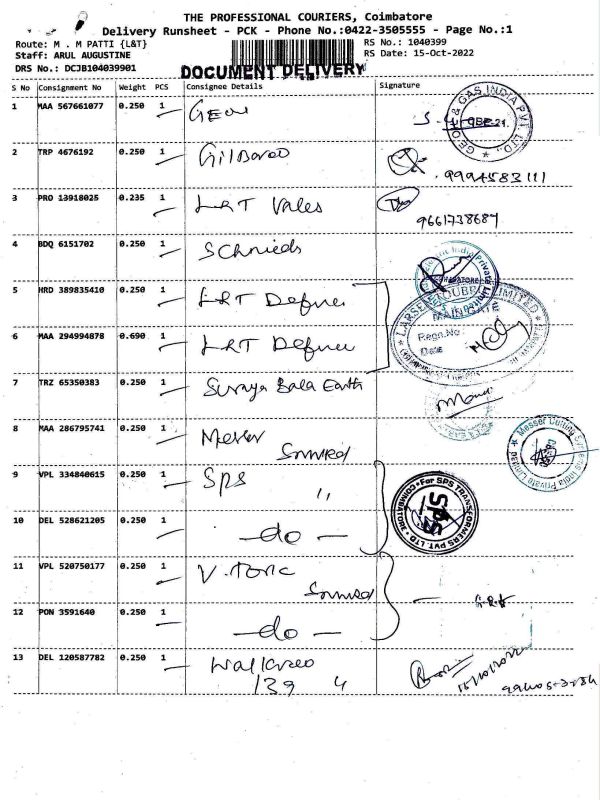 THE PROFESSIONAL COURIERS, Coimbatore
Delivery Runsheet - PCK - Phone No.:0422-3505555 - Page No.:1
Route: M . M PATTI {L&T}
RS No.: 1040399
Staff: ARUL AUGUSTINE
RS Date: 15-Oct-2022
DRS No.: DCJB104039901
DOCUMENT DELIVERY
S No Consignment No Weight PCS Consignee Details Signature
1 MAA 567661077 0.250 1
GAS INDIA PVT. LTD.
2 TRP 4676192 0.250 1
9994583111
3 PRO 13918025 0.235 1 L&T Valves
9661738687
4 BDQ 6151702 0.250 1
5 HRD 389835410 0.250 1 L&T
LARSEN & TOUBRO LIMITED
MAIN GATE
Regn.No
Date
6 MAA 294994878 0.690 1 L&T
7 TRZ 65350383 0.250 1 Suraya Bala Earth
8 MAA 286795741 0.250 1 Messer
Messer Cutting Systems India Private Limited
9 VPL 334840615 0.250 1 SPS
For SPS TRANSFORMERS PVT. LTD. COIMBATORE
SPS
10 DEL 528621205 0.250 1 - do -
11 VPL 520750177 0.250 1
12 PON 3591640 0.250 1 - do -
13 DEL 120587782 0.250 1
139 "